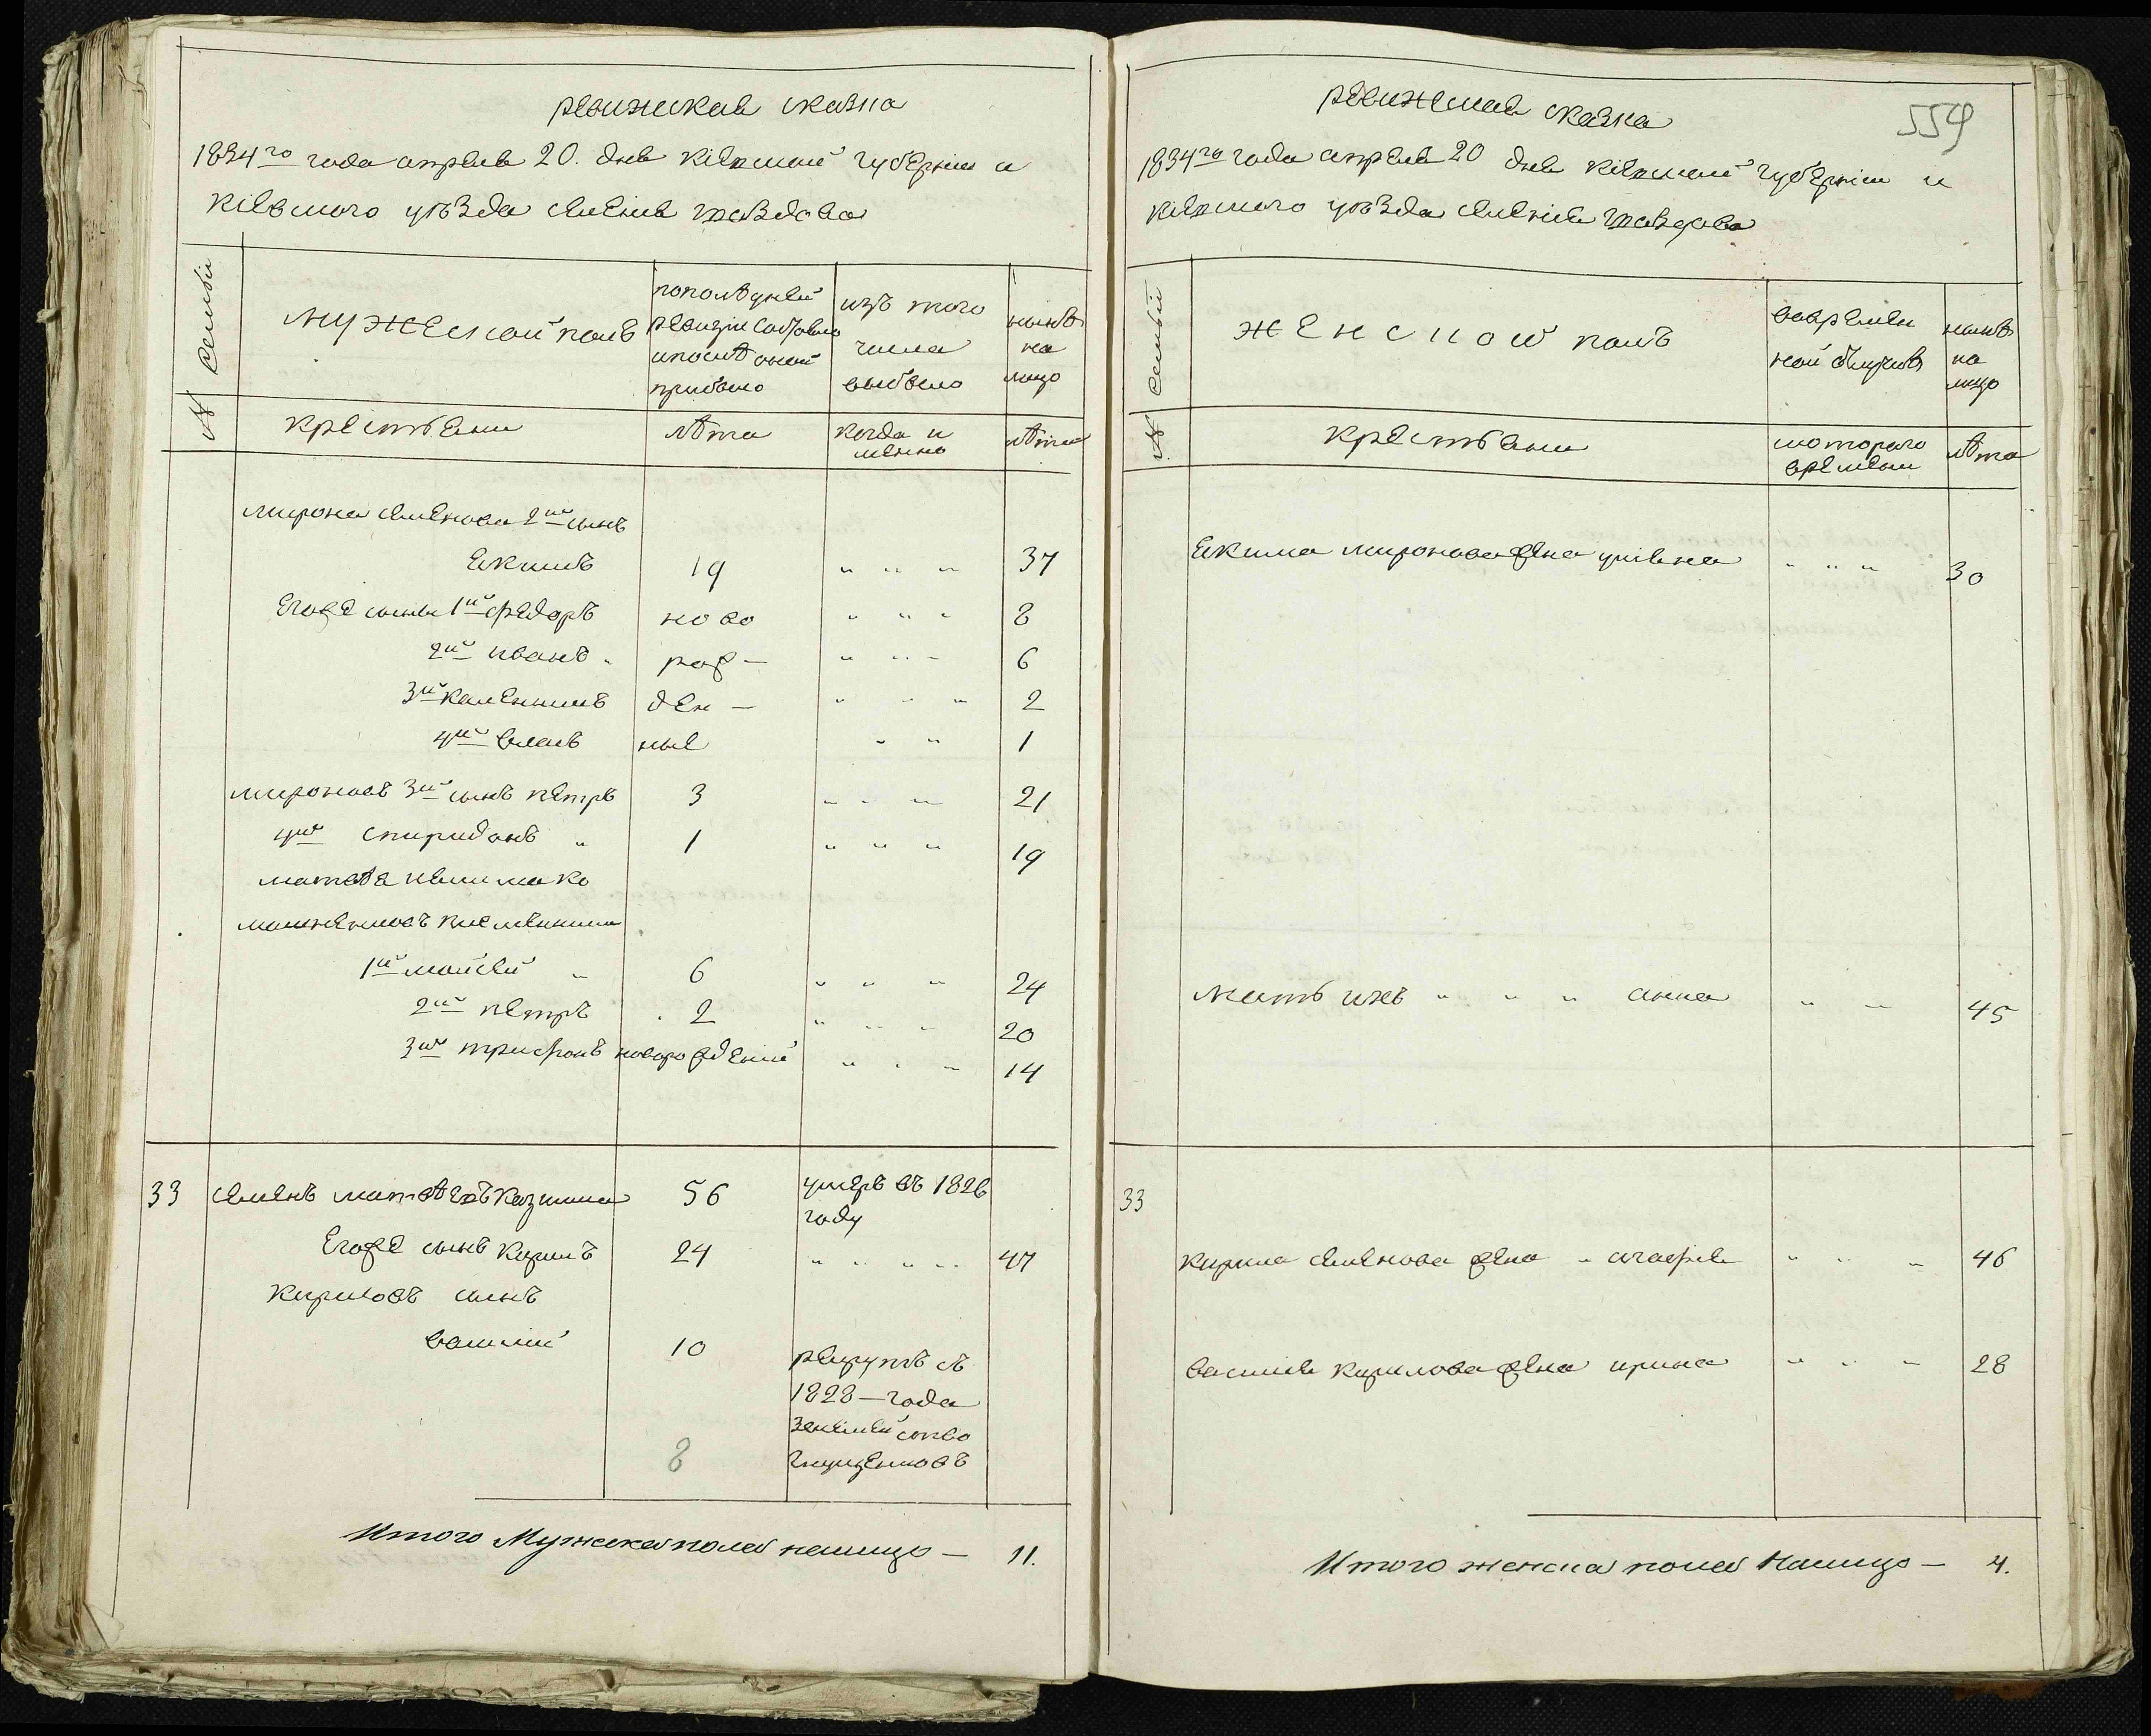 ревижская сказка
1834го года апреля 20. дня кіевской губерніи и
кіевского уѣзда селенія гвоздова
№ Семьи
мужеской полъ
пополѣдней
ревизіи состояло
и после оной
прибыло
изъ того
числа
выбыло
нынѣ
на
лицо
крестьяни
лѣта
когда и
менно
лѣта
мирона семенова 2й сынъ
Екимъ 19 " " " 37
Егоже сыны 1й Федоръ ново " " " 8
2й иванъ " рож— " " " 6
3й калениикъ ден— " " " 2
4й власъ ные " " 1
мироновъ 3й сынъ петръ 3 " " " 21
4й спиридонъ " 1 " " " 19
матвѣя
1й мойсей " 6 " " " 24
2й петръ 2 " " " 20
3й трифонъ новорожденій " " " 14
33 семенъ матвѣевъ казмина 56 умеръ въ 1826
году
Егоже сынъ кирилъ 24 " " " " 47
кириловъ сынъ
василий 10 рекрутъ съ
1828—года
8
Итого Мужеска пола налицо — 11.
559
ревижская сказка
1834го года апреля 20 дня кіевской губерніи и
кіевского уѣзда селенія гвоздова
№ Семьи
женской полъ
вовремен
ной отлучкѣ
нынѣ
на
лицо
крестьяни
которого
времени
лѣта
Екима миронова жена уліяна " " " 30
Мать ихъ " " " анна " " 45
33
кирила семенова жена " агафія " " " 46
василия кирилова жена ирина " " " 28
Итого женска пола Налицо — 4.